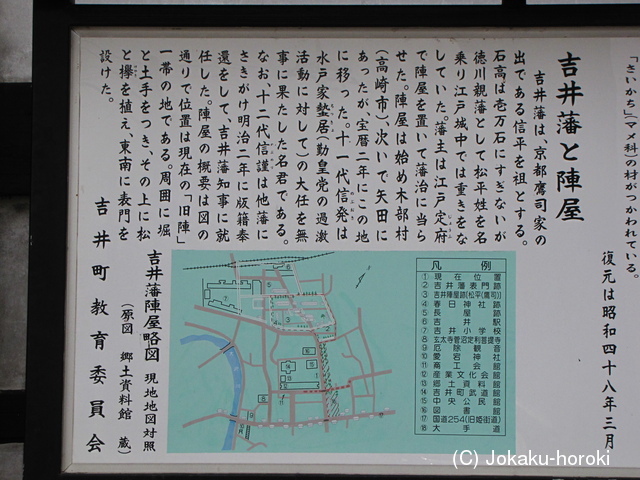 「さいかち」(マメ科)の材がつかわれている。
復元は昭和四十八年三月
吉井藩と陣屋
吉井藩は、京都鷹司家の
出である信平を祖とする。
石高は壱万石にすぎないが
徳川親藩として松平姓を名
乗り江戸城中では重きをな
していた。藩主は江戸定府
で陣屋を置いて藩治に当ら
せた。陣屋は始め木部村
(高崎市)、次いで矢田に
あったが、宝暦二年にこの地
に移った。十一代信発は
水戸家蟄居(勤皇党の過激
活動に対して)の大任を無
事に果たした名君である。
なお、十二代信謹は他藩に
さきがけ明治二年に版籍奉
還をして、吉井藩知事に就
任した。陣屋の概要は図の
通りで位置は現在の「旧陣」
一帯の地である。周囲に堀
と土手をつき、その上に松
と欅を植え、東南に表門を
設けた。
吉井町教育委員会
吉井藩陣屋略図 現地地図対照
(原図 郷土資料館 蔵)
凡例
①現在位置
②吉井藩表門跡
③吉井陣屋跡(松平(鷹司))
④春日神社跡
⑤長屋跡
⑥吉井駅
⑦吉井小学校
⑧玄太寺菅沼定利菩提寺
⑨厄除観音
⑩愛宕神社
⑪商工会館
⑫産業文化会館
⑬郷土資料館
⑭吉井町武道館
⑮中央公民館
⑯図書館
⑰国道254(旧姫街道)
⑱大手道
(C) Jokaku-horoki